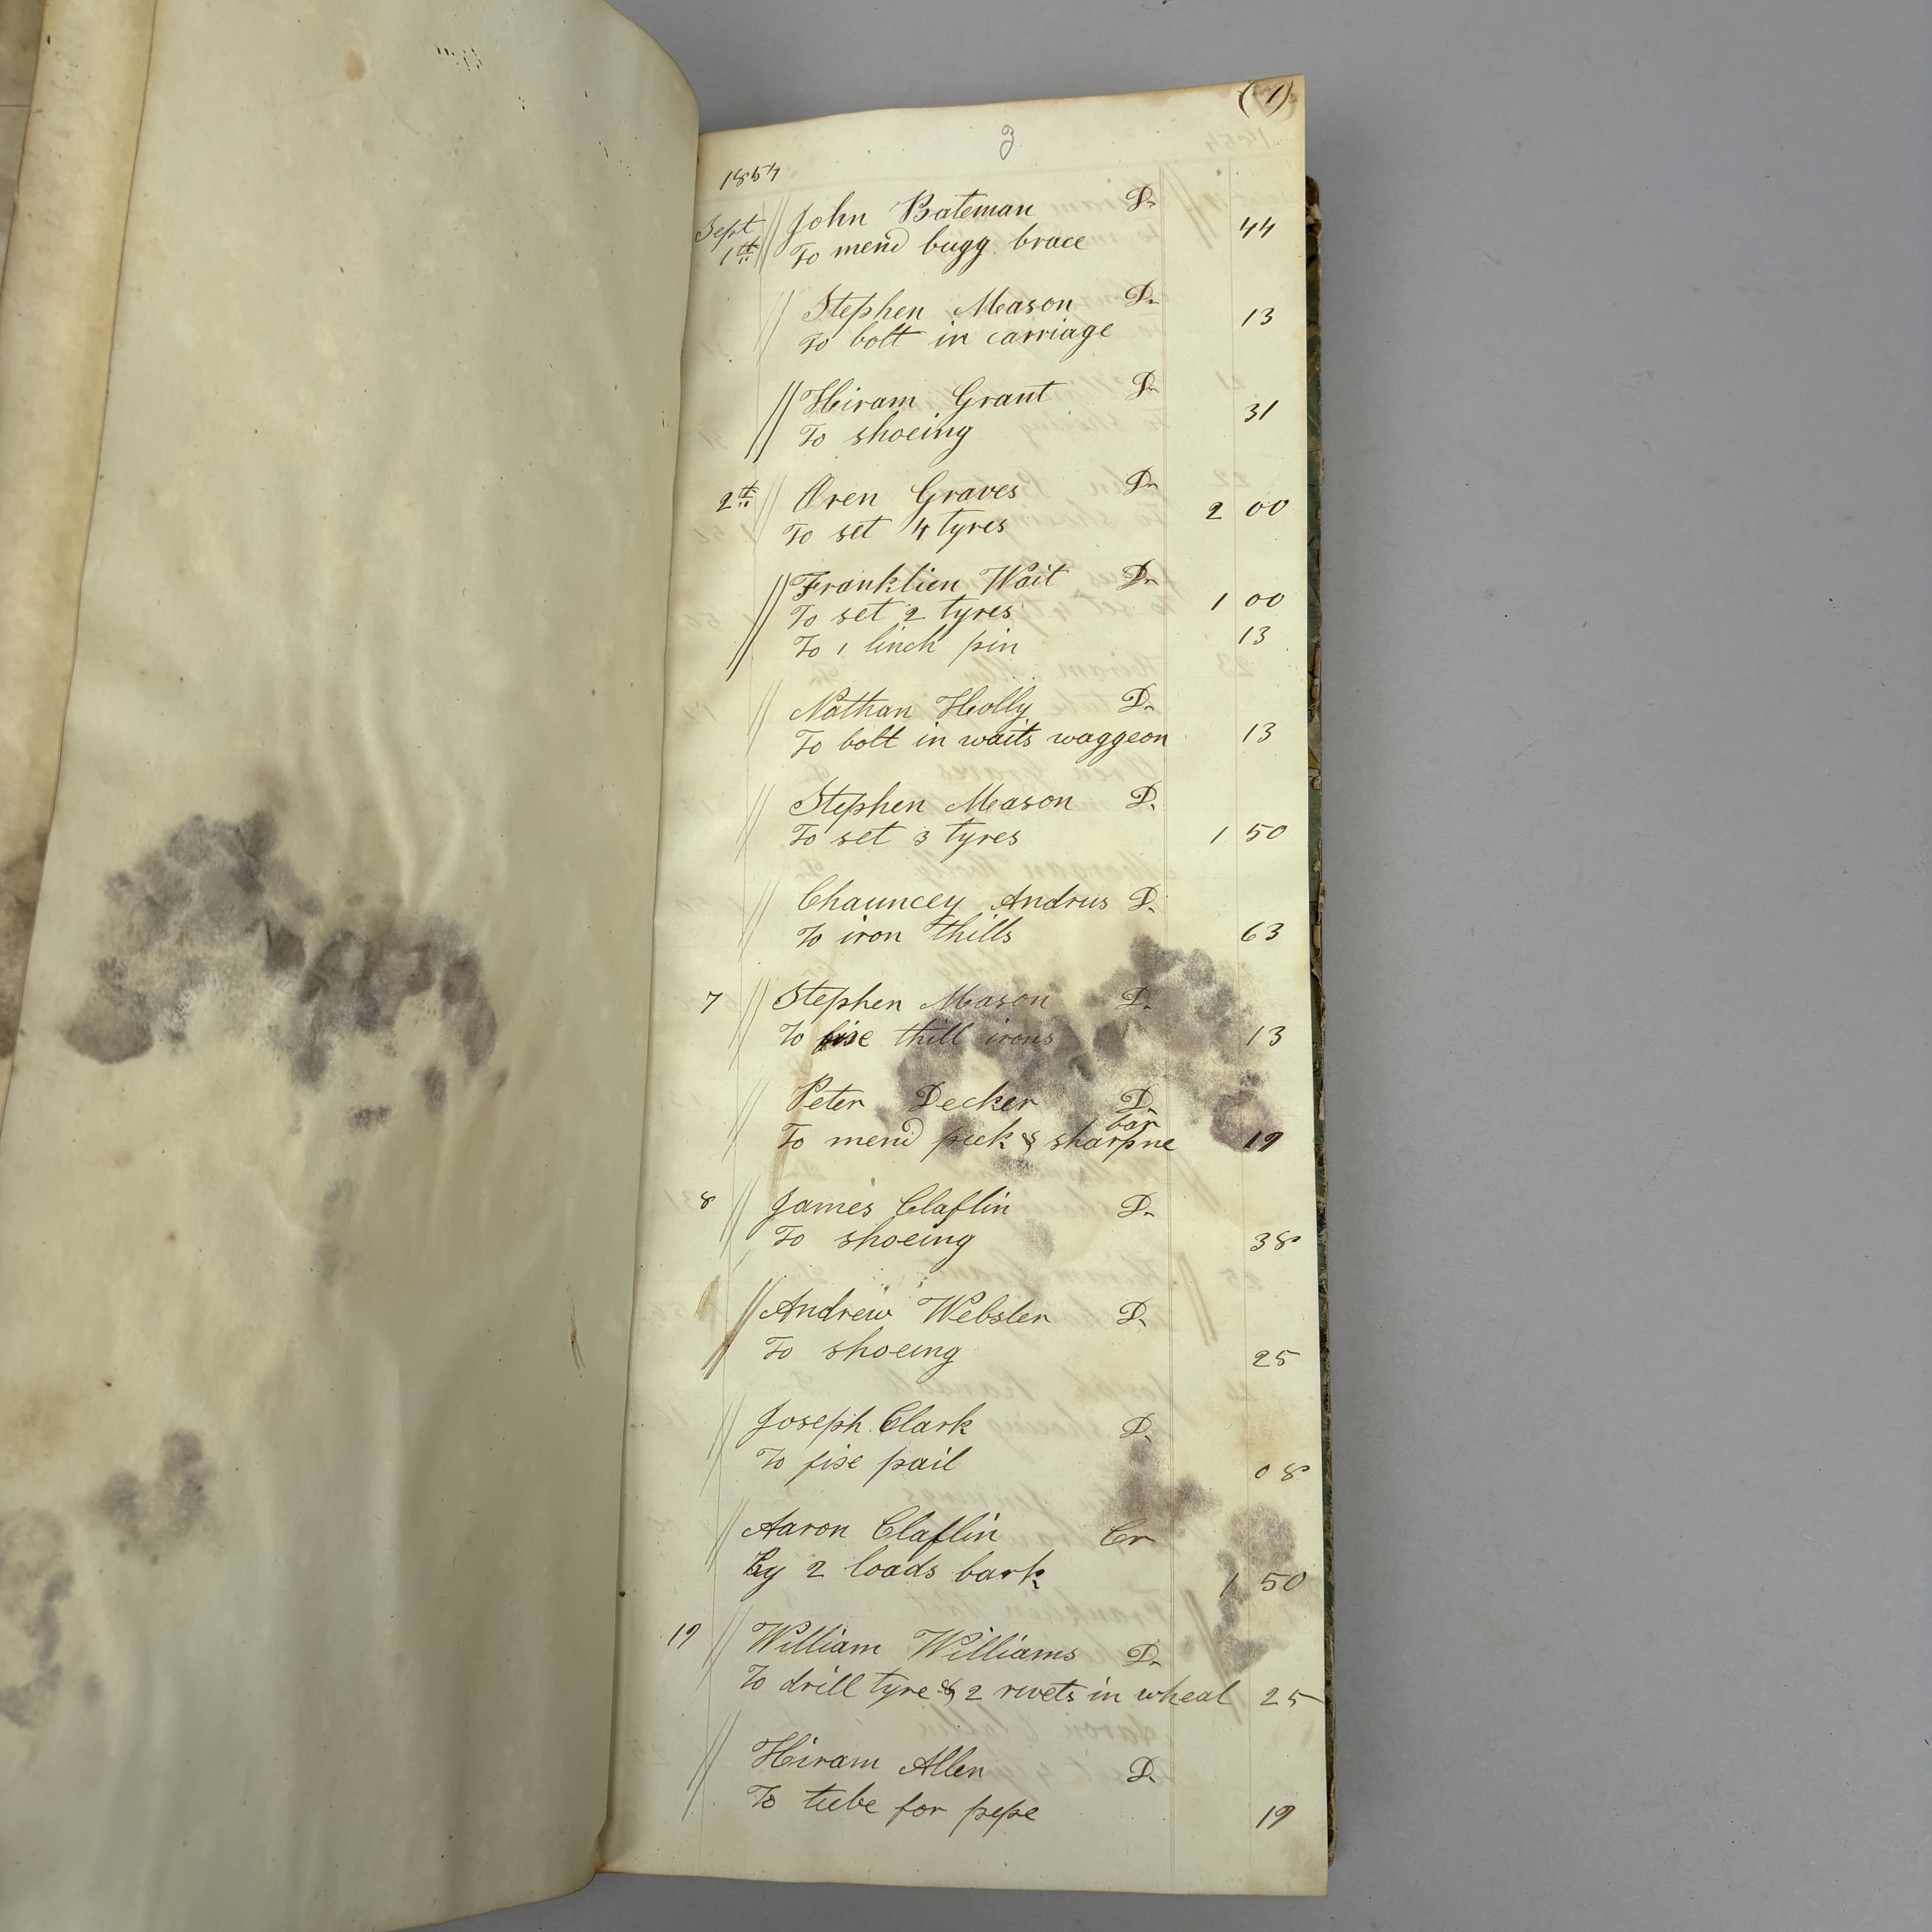 (1)
3
1854
Sept 1th John Bateman Dr
To mend bugg brace 44
Stephen Meason Dr
To bolt in carriage 13
Hiram Grant Dr
To shoeing 31
2th Oren Graves Dr
To set 4 tyres 2 00
Franklien Wait Dr
To set 2 tyres 1 00
To 1 linch pin 13
Nathan Holly Dr
To bolt in waits waggeon 13
Stephen Meason Dr
To set 3 tyres 1 50
Chauncey Andrus Dr
To iron thills 63
7 Stephen Meason Dr
To fixe thill irons 13
Peter Decker Dr
To mend pick & sharpne bar 19
8 James Claflin Dr
To shoeing 38
Andrew Webster Dr
To shoeing 25
Joseph Clark Dr
To fixe pail 08
Aaron Claflin Cr
By 2 loads bark 1 50
19 William Williams Dr
To drill tyre & 2 rivets in wheal 25
Hiram Allen Dr
To tube for pepe 19